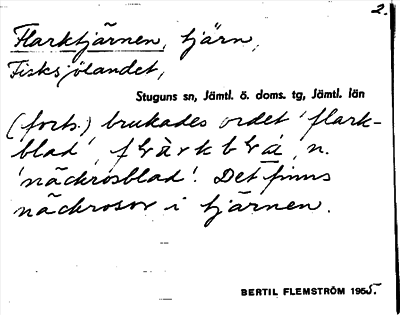 2.
Flarktjärnen, tjärn,
Fisksjölandet,
Stuguns sn, Jämtl. ö. doms. tg, Jämtl. län
(forts.) brukades ordet 'flark-
blad', n.
'näckrosblad'. Det finns
näckrosor i tjärnen.
BERTIL FLEMSTRÖM 1965.